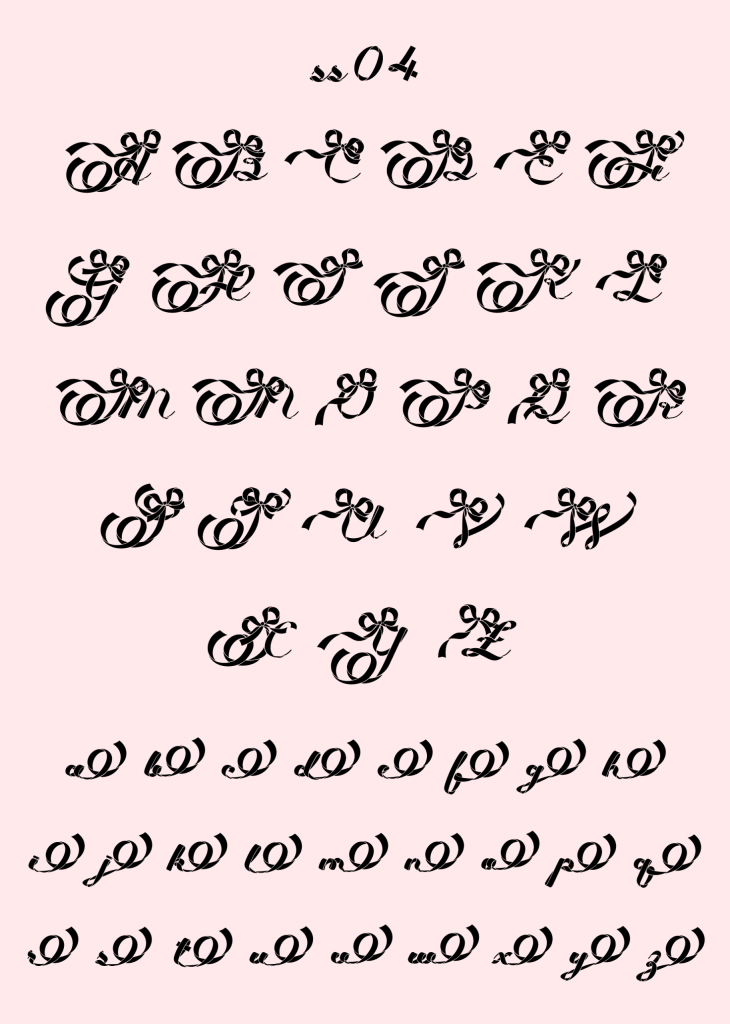 ss04
A B C D E F
G H I J K L
M N O P Q R
S T U V W
X Y Z
a b c d e f g h
i j k l m n o p q
r s t u v w x y z